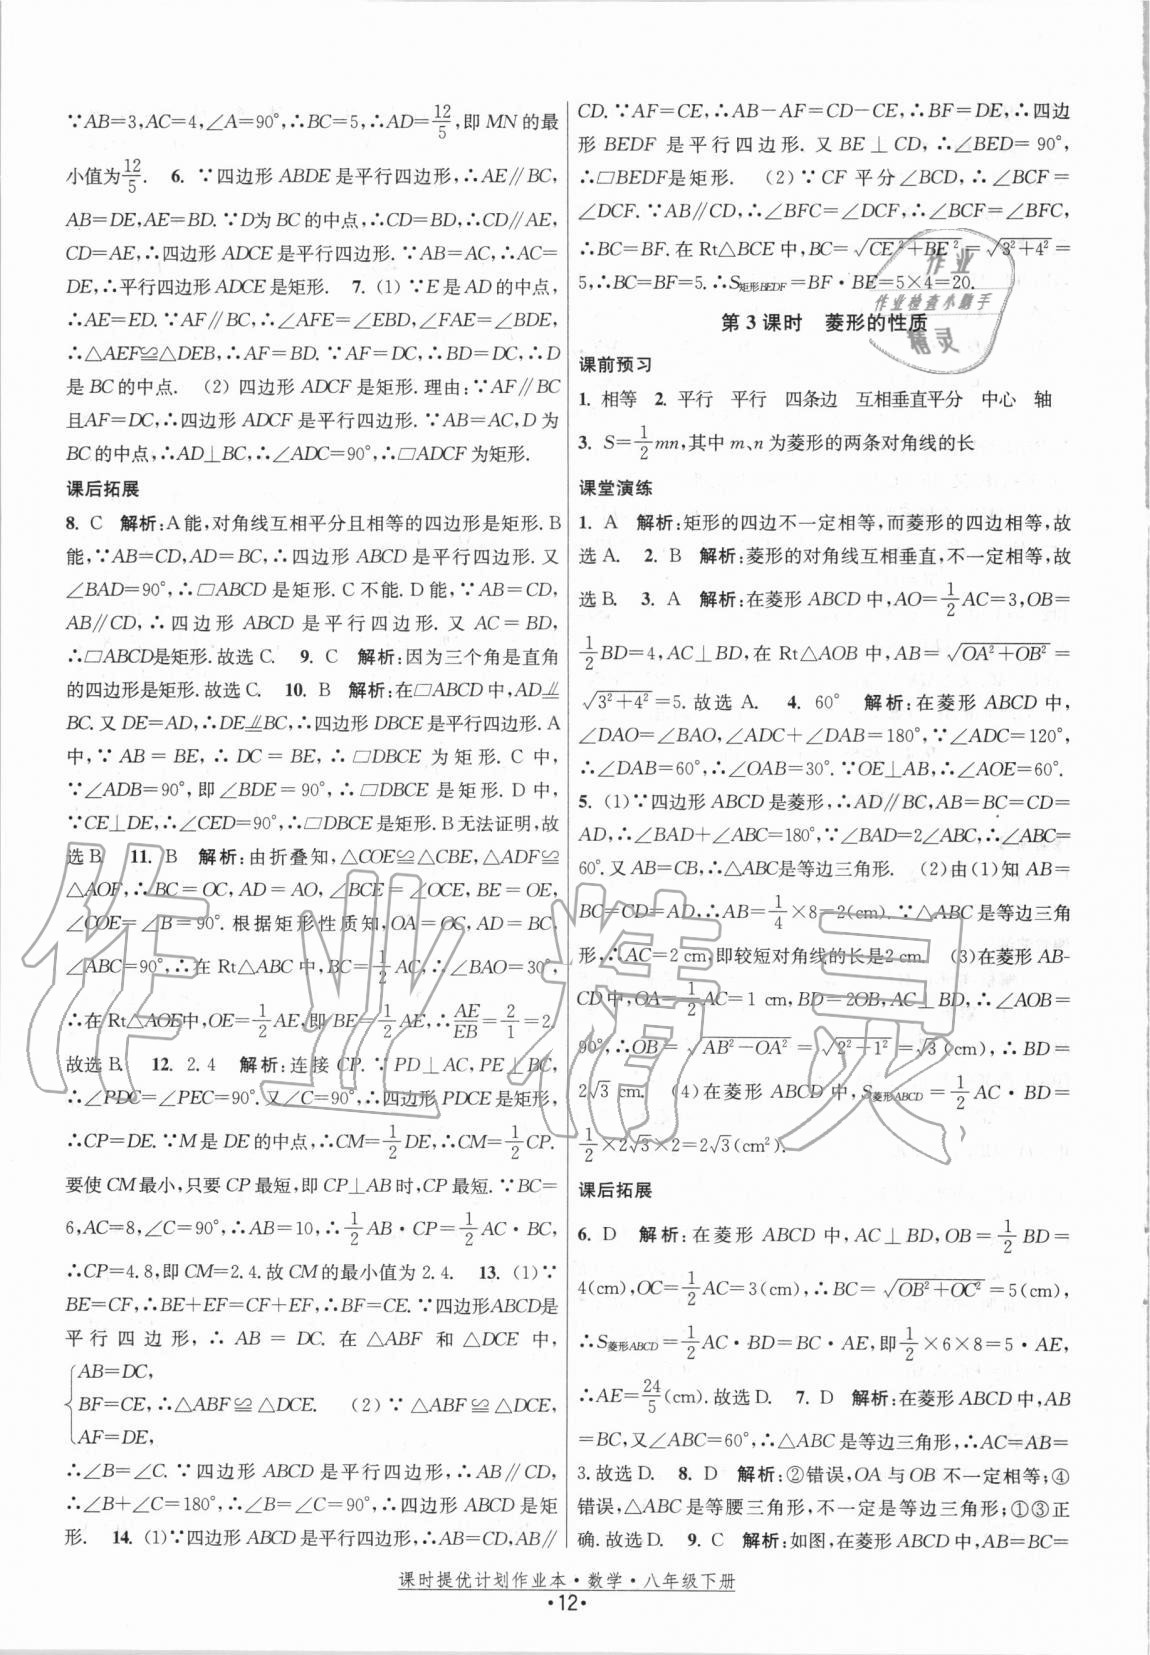 ∵AB=3,AC=4,∠A=90°,∴BC=5,∴AD=12/5,即 MN 的最
小值为12/5. 6. ∵四边形 ABDE 是平行四边形,∴AE∥BC,
AB=DE,AE=BD.∵D为 BC 的中点,∴CD=BD,∴CD∥AE,
CD=AE,∴四边形 ADCE 是平行四边形.∵AB=AC,∴AC=
DE,∴平行四边形 ADCE 是矩形. 7. (1) ∵E 是 AD 的中点,
∴AE=ED.∵AF∥BC,∴∠AFE=∠EBD,∠FAE=∠BDE,
∴△AEF≌△DEB,∴AF=BD.∵AF=DC,∴BD=DC,∴D
是 BC 的中点. (2) 四边形 ADCF 是矩形.理由:∵AF∥BC
且AF=DC,∴四边形 ADCF 是平行四边形.∵AB=AC,D 为
BC 的中点,∴AD⊥BC,∴∠ADC=90°,∴□ADCF 为矩形.
课后拓展
8. C 解析:A能,对角线互相平分且相等的四边形是矩形.B
能,∵AB=CD,AD=BC,∴四边形 ABCD 是平行四边形.又
∠BAD=90°,∴□ABCD 是矩形.C 不能.D 能,∵AB=CD,
AB∥CD,∴四边形 ABCD 是平行四边形.又 AC=BD,
∴□ABCD是矩形.故选 C. 9. C 解析:因为三个角是直角
的四边形是矩形.故选 C. 10. B 解析:在□ABCD 中,AD⫽
BC.又 DE=AD,∴DE⫽BC,∴四边形 DBCE 是平行四边形.A
中,∵AB=BE,∴DC=BE,∴□DBCE 为矩形.C 中,
∵∠ADB=90°,即∠BDE=90°,∴□DBCE 是矩形.D 中,
∵CE⊥DE,∴∠CED=90°,∴□DBCE 是矩形.B无法证明,故
选 B. 11. B 解析:由折叠知,△COE≌△CBE,△ADF≌
△AOF,∴BC=OC,AD=AO,∠BCE=∠OCE,BE=OE,
∠COE=∠B=90°.根据矩形性质知,OA=OC,AD=BC,
∠ABC=90°,∴在 Rt△ABC 中,BC=1/2AC,∴∠BAO=30°,
∴在 Rt△AOE中,OE=1/2AE,即 BE=1/2AE,∴AE/EB=2/1=2.
故选 B. 12. 2.4 解析:连接 CP.∵PD⊥AC,PE⊥BC,
∴∠PDC=∠PEC=90°.又∠C=90°,∴四边形 PDCE 是矩形,
∴CP=DE.∵M 是 DE 的中点,∴CM=1/2DE,∴CM=1/2CP.
要使 CM 最小,只要 CP 最短,即 CP⊥AB 时,CP 最短.∵BC=
6,AC=8,∠C=90°,∴AB=10,∴1/2AB·CP=1/2AC·BC,
∴CP=4.8,即 CM=2.4.故 CM 的最小值为 2.4. 13. (1)∵
BE=CF,∴BE+EF=CF+EF,∴BF=CE.∵四边形ABCD是
平行四边形,∴AB=DC.在△ABF 和△DCE 中,
AB=DC,
BF=CE,∴△ABF≌△DCE. (2)∵△ABF≌△DCE,
AF=DE,
∴∠B=∠C.∵四边形 ABCD 是平行四边形,∴AB∥CD,
∴∠B+∠C=180°,∴∠B=∠C=90°,∴四边形 ABCD 是矩
形. 14. (1)∵四边形ABCD是平行四边形,∴AB=CD,AB∥
CD.∵AF=CE,∴AB-AF=CD-CE,∴BF=DE,∴四边
形 BEDF 是平行四边形.又 BE⊥CD,∴∠BED=90°,
∴□BEDF是矩形. (2)∵CF 平分∠BCD,∴∠BCF=
∠DCF.∵AB∥CD,∴∠BFC=∠DCF,∴∠BCF=∠BFC,
∴BC=BF.在 Rt△BCE 中,BC=√(CE²+BE²)=√(3²+4²)=
5,∴BC=BF=5,∴S矩形BEDF=BF·BE=5×4=20.
第 3 课时 菱形的性质
课前预习
1. 相等 2. 平行 平行 四条边 互相垂直平分 中心 轴
3. S=1/2mn,其中 m、n 为菱形的两条对角线的长
课堂演练
1. A 解析:矩形的四边不一定相等,而菱形的四边相等,故
选 A. 2. B 解析:菱形的对角线互相垂直,不一定相等,故
选 B. 3. A 解析:在菱形 ABCD 中,AO=1/2AC=3,OB=
1/2BD=4,AC⊥BD,在 Rt△AOB 中,AB=√(OA²+OB²)=
√(3²+4²)=5.故选 A. 4. 60° 解析:在菱形 ABCD 中,
∠DAO=∠BAO,∠ADC+∠DAB=180°.∵∠ADC=120°,
∴∠DAB=60°,∴∠OAB=30°.∵OE⊥AB,∴∠AOE=60°.
5. (1)∵四边形 ABCD 是菱形,∴AD∥BC,AB=BC=CD=
AD,∴∠BAD+∠ABC=180°.∵∠BAD=2∠ABC,∴∠ABC=
60°.又 AB=CB,∴△ABC是等边三角形. (2)由(1)知 AB=
BC=CD=AD,∴AB=1/4×8=2(cm).∵△ABC 是等边三角
形,∴AC=2 cm,即较短对角线的长是2 cm. (3)在菱形 AB-
CD中,OA=1/2AC=1 cm,BD=2OB,AC⊥BD,∴∠AOB=
90°,∴OB=√(AB²-OA²)=√(2²-1²)=√3(cm),∴BD=
2√3 cm. (4)在菱形 ABCD 中,S菱形ABCD=1/2AC·BD=
1/2×2√3×2=2√3(cm²).
课后拓展
6. D 解析:在菱形 ABCD 中,AC⊥BD,OB=1/2BD=
4(cm),OC=1/2AC=3(cm),∴BC=√(OB²+OC²)=5(cm),
∴S菱形ABCD=1/2AC·BD=BC·AE,即1/2×6×8=5·AE,
∴AE=24/5(cm).故选 D. 7. D 解析:在菱形 ABCD 中,AB
=BC,又∠ABC=60°,∴△ABC 是等边三角形,∴AC=AB=
3.故选 D. 8. D 解析:②错误,OA 与 OB 不一定相等;④
错误,△ABC 是等腰三角形,不一定是等边三角形;①③正
确.故选 D. 9. C 解析:如图,在菱形 ABCD 中,AB=BC=
课时提优计划作业本·数学·八年级下册
·12·
作业
作业检查小助手
精灵
作业精灵